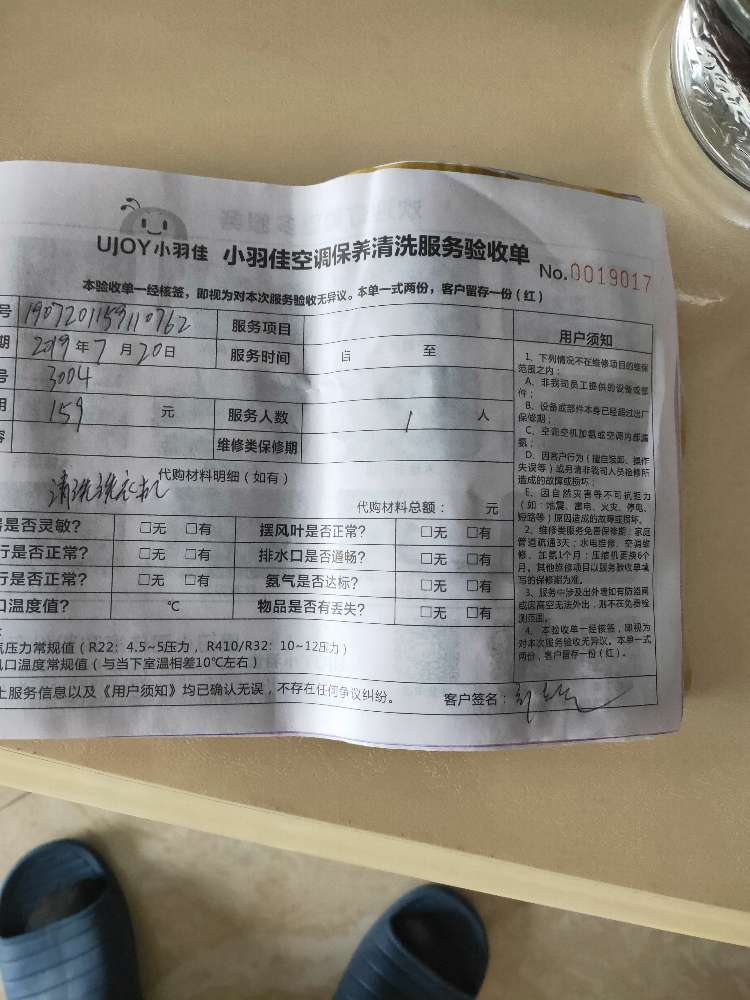 UJOY小羽佳 小羽佳空调保养清洗服务验收单 No.0019017
本验收单一经核签，即视为对本次服务验收无异议。本单一式两份，客户留存一份（红）
号 1907201159110762 服务项目
期 2019年7月20日 服务时间 自 至
号 3004
用 159 元 服务人数 1 人
容 维修类保修期
代购材料明细（如有）
清洗洗衣机
代购材料总额： 元
是否灵敏？ □无 □有 摆风叶是否正常？ □无 □有
行是否正常？ □无 □有 排水口是否通畅？ □无 □有
行是否正常？ □无 □有 氨气是否达标？ □无 □有
口温度值？ ℃ 物品是否有丢失？ □无 □有
压力常规值（R22：4.5~5压力，R410/R32：10~12压力）
口温度常规值（与当下室温相差10℃左右）
上服务信息以及《用户须知》均已确认无误，不存在任何争议纠纷。 客户签名：
用户须知
1、下列情况不在维修项目的维保
范围之内：
A、非我司员工提供的设备或部
件；
B、设备或部件本身已经超过出厂
保修期；
C、空调空机加氨或空调内部漏
氨；
D、因客户行为（擅自装卸、操作
失误等）或另请非我司人员检修所
造成的故障或损坏；
E、因自然灾害等不可抗拒力
（如：地震、雷电、火灾、停电、
短路等）原因造成的故障或损坏。
2、维修类服务免费保修期：家庭
管道疏通3天；水电维修、空调维
修、加氨1个月；压缩机更换6个
月。其他维修项目以服务验收单填
写的保修期为准。
3、服务中涉及出外墙如有防盗网
或店高空无法外出，则不在免费检
测范围。
4、本验收单一经核签，即视为
对本次服务验收无异议。本单一式
两份，客户留存一份（红）。